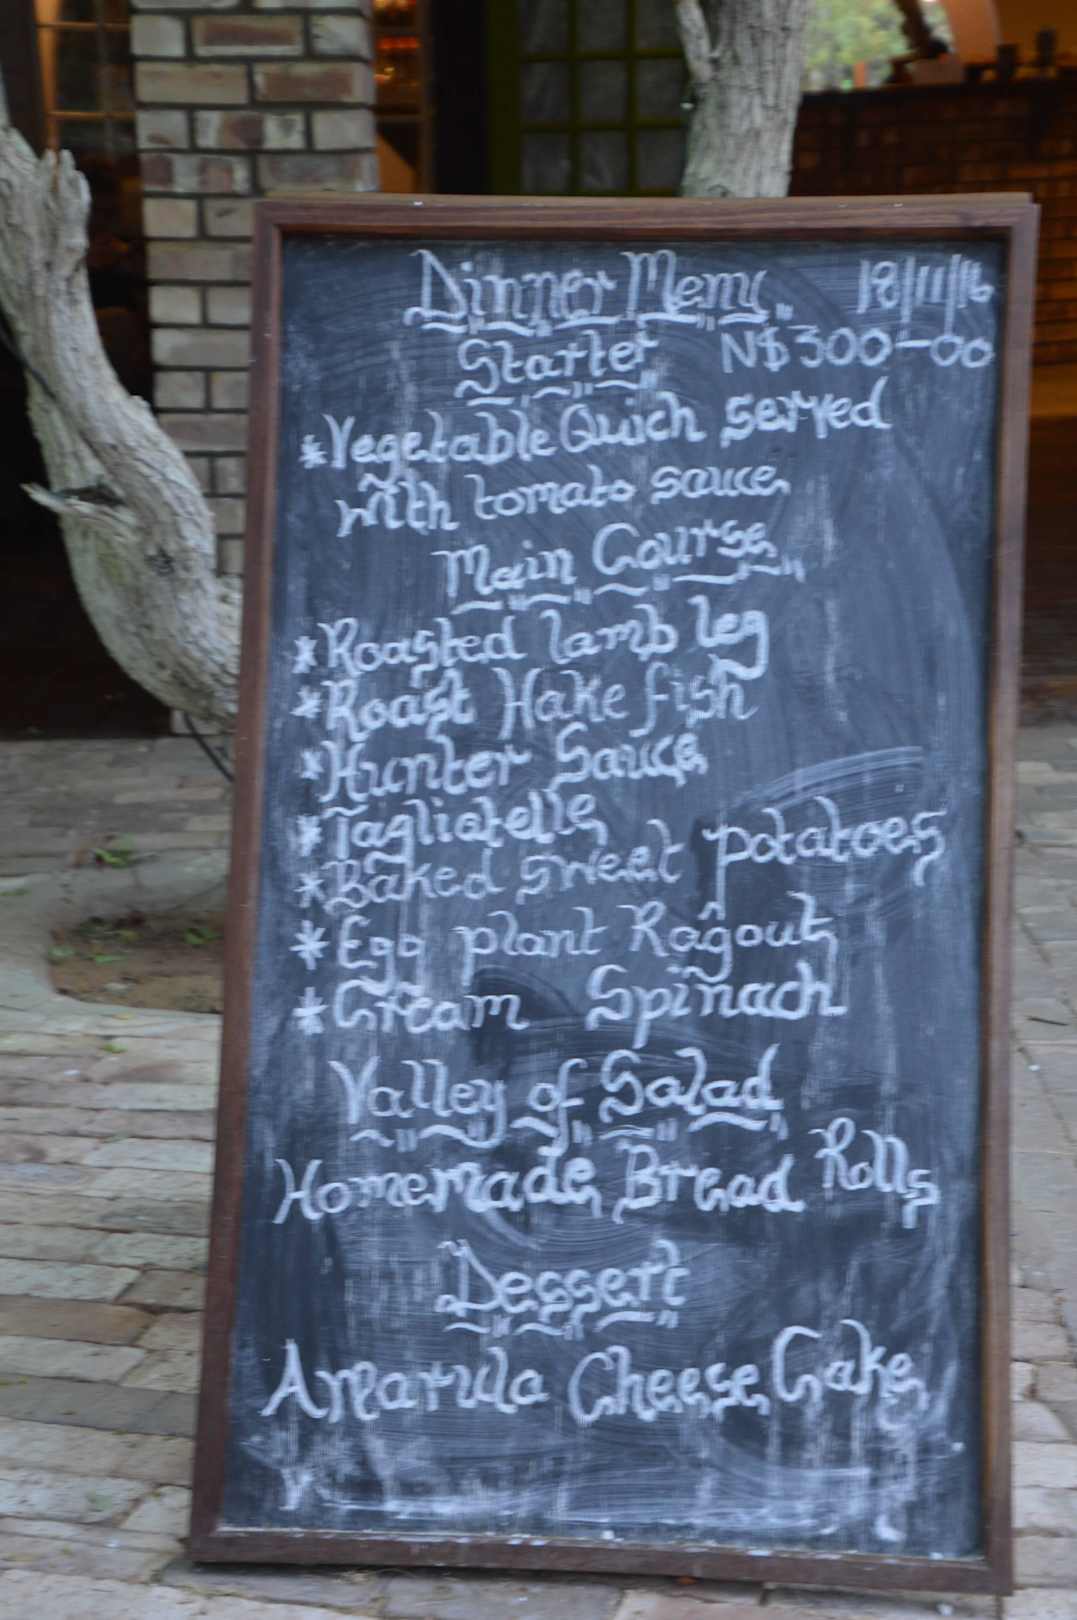 Dinner Menu 18/11/16
Starter N$300-00
*Vegetable Quich served
with tomato sauce
Main Course
*Roasted lamb leg
*Roast Hake fish
*Hunter Sauce
*Tagliatelle
*Baked sweet potatoes
*Egg plant Ragout
*Cream Spinach
Valley of Salad
Homemade Bread Rolls
Dessert
Amarula Cheese Cake